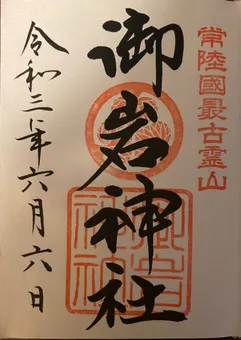 常陸國最古霊山
御岩神社
令和三年六月六日